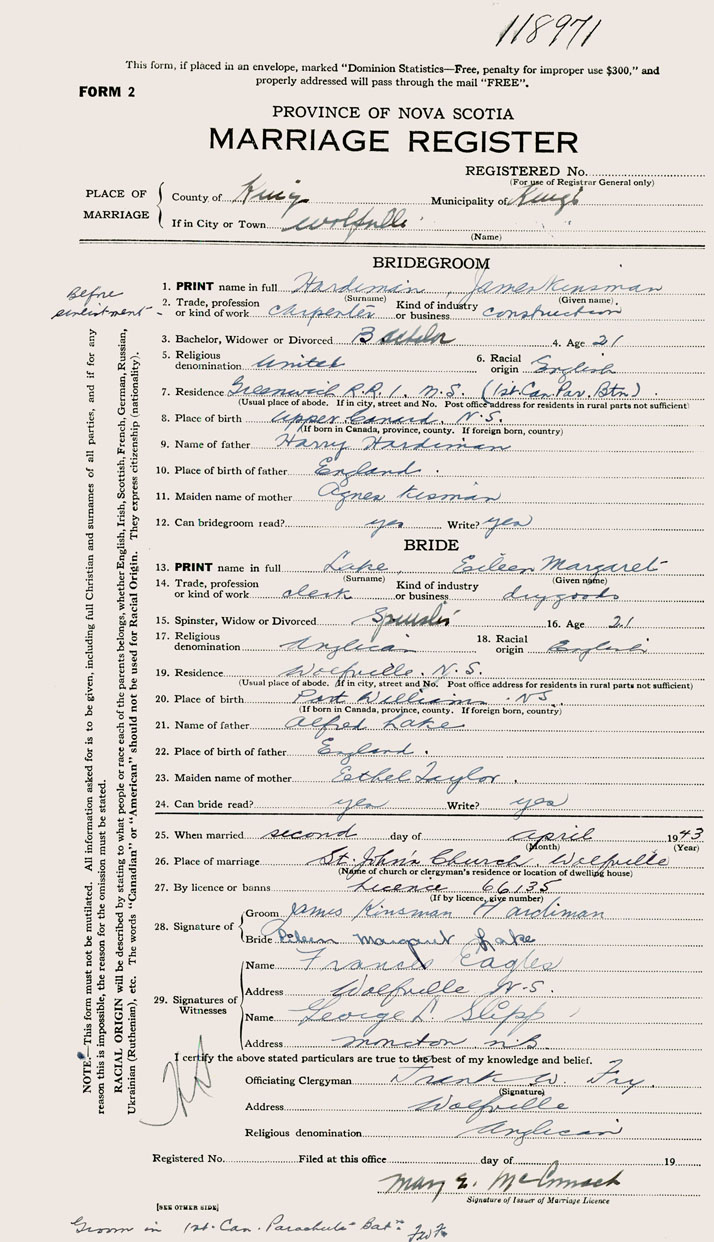 118971
This form, if placed in an envelope, marked "Dominion Statistics—Free, penalty for improper use $300," and
properly addressed will pass through the mail "FREE".
FORM 2
PROVINCE OF NOVA SCOTIA
MARRIAGE REGISTER
REGISTERED No.
(For use of Registrar General only)
PLACE OF MARRIAGE
County of Kings Municipality of Kings
If in City or Town Wolfville
(Name)
BRIDEGROOM
Before enlistment -
1. PRINT name in full Hardiman, James Kinsman
(Surname) (Given name)
2. Trade, profession or kind of work carpenter Kind of industry or business construction
3. Bachelor, Widower or Divorced Bachelor 4. Age 21
5. Religious denomination United 6. Racial origin English
7. Residence Greenwich R.R.1. N.S. (1st Can. Par. Btn)
(Usual place of abode. If in city, street and No. Post office address for residents in rural parts not sufficient)
8. Place of birth Upper Canard, N.S.
(If born in Canada, province, county. If foreign born, country)
9. Name of father Harry Hardiman
10. Place of birth of father England.
11. Maiden name of mother Agnes Kisman
12. Can bridegroom read? yes Write? yes
BRIDE
13. PRINT name in full Lake, Eileen Margaret
(Surname) (Given name)
14. Trade, profession or kind of work clerk Kind of industry or business drygoods
15. Spinster, Widow or Divorced Spinster 16. Age 21
17. Religious denomination Anglican 18. Racial origin English
19. Residence Wolfville, N.S.
(Usual place of abode. If in city, street and No. Post office address for residents in rural parts not sufficient)
20. Place of birth Port Williams N.S.
(If born in Canada, province, county. If foreign born, country)
21. Name of father Alfred Lake
22. Place of birth of father England.
23. Maiden name of mother Ethel Taylor.
24. Can bride read? yes Write? yes
25. When married second day of April 1943
(Month) (Year)
26. Place of marriage St. John's Church, Wolfville
(Name of church or clergyman's residence or location of dwelling house)
27. By licence or banns Licence 66135
(If by licence, give number)
28. Signature of
Groom James Kinsman Hardiman
Bride Eileen Margaret Lake
29. Signatures of Witnesses
Name Frances Eagles
Address Wolfville N.S.
Name George L. Slipp
Address Moncton N.B.
I certify the above stated particulars are true to the best of my knowledge and belief.
Officiating Clergyman Frank W. Fry.
(Signature)
Address Wolfville
Religious denomination Anglican
Registered No. Filed at this office day of 19
Mary E. McCormack
Signature of Issuer of Marriage Licence
[SEE OTHER SIDE]
Groom in 1st. Can. Parachute Batn.
NOTE.—This form must not be mutilated. All information asked for is to be given, including full Christian and surnames of all parties, and if for any
reason this is impossible, the reason for the omission must be stated.
RACIAL ORIGIN will be described by stating to what people or race each of the parents belongs, whether English, Irish, Scottish, French, German, Russian,
Ukrainian (Ruthenian), etc. The words "Canadian" or "American" should not be used for Racial Origin. They express citizenship (nationality).